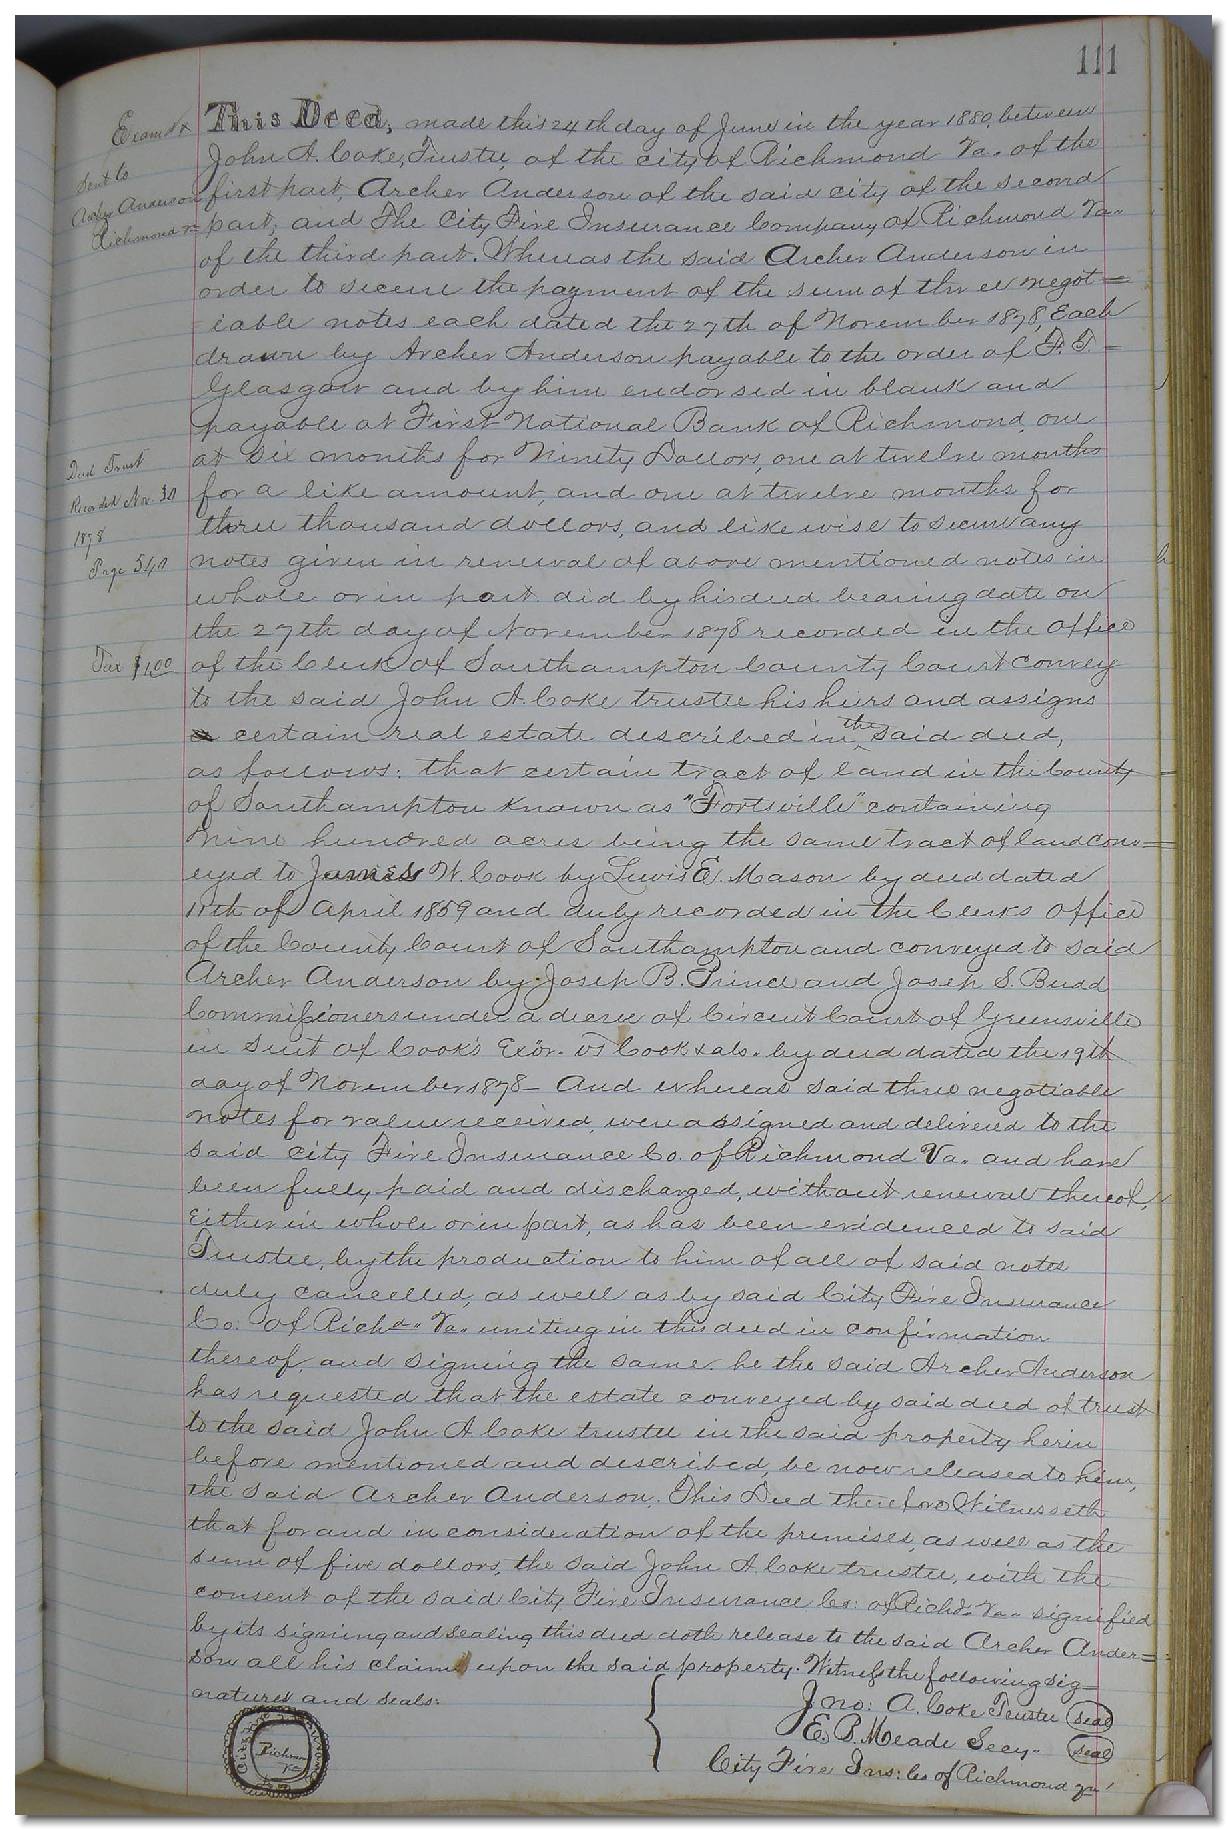 111
Examd &
Sent to
Archer Anderson
Richmond Va
This Deed, made this 24th day of June in the year 1880, between
John A. Coke, Trustee, of the city of Richmond Va. of the
first part, Archer Anderson of the said city of the second
part, and The City Fire Insurance Company of Richmond Va.
of the third part. Whereas the said Archer Anderson in
order to secure the payment of the sum of three negot=
iable notes each dated the 27th of November 1878, Each
drawn by Archer Anderson payable to the order of F. T.
Glasgow and by him endorsed in blank and
payable at First National Bank of Richmond, one
at six months for Ninety Dollars, one at twelve months
for a like amount, and one at twelve months for
three thousand dollars, and like wise to secure any
notes given in renewal of above mentioned notes in
whole or in part did by his deed bearing date on
the 27th day of November 1878 recorded in the office
of the Clerk of Southampton County Court convey
to the said John A. Coke trustee his heirs and assigns
certain real estate described in the said deed,
as follows: that certain tract of land in the County
of Southampton known as "Fortsville" containing
nine hundred acres being the same tract of land conv=
eyed to James W. Cook by Lewis E. Mason by deed dated
11th of April 1859 and duly recorded in the Clerks Office
of the County Court of Southampton and conveyed to said
Archer Anderson by Joseph B. Prince and Joseph S. Budd
Commissioners under a decree of Circuit Court of Greensville
in suit of Cook's Exor. vs Cook & als. by deed dated the 19th
day of November 1878 - And whereas said three negotiable
notes for value received, were assigned and delivered to the
said City Fire Insurance Co. of Richmond Va. and have
been fully paid and discharged, without renewal thereof,
Either in whole or in part, as has been evidenced to said
Trustee, by the production to him of all of said notes
duly cancelled, as well as by said City Fire Insurance
Co: of Richd. Va. uniting in this deed in confirmation
thereof, and signing the same he the said Archer Anderson
has requested that the estate conveyed by said deed of trust
to the said John A Coke trustee in the said property herein
before mentioned and described, be now released to him,
the said Archer Anderson. This Deed therefore Witnesseth
that for and in consideration of the premises, as well as the
sum of five dollars, the said John A Coke trustee, with the
consent of the said City Fire Insurance Co: of Richd. Va. signified
by its signing and sealing this deed doth release to the said Archer Ander=
son all his claims upon the said property. Witness the following sig-
natures and seals.
Deed Trust
Recorded Nov. 30
1878
Page 540
Tax $1.00
Jno: A. Coke Trustee seal
E. B. Meade Secy. seal
City Fire Ins: Co of Richmond
Richmond
Va